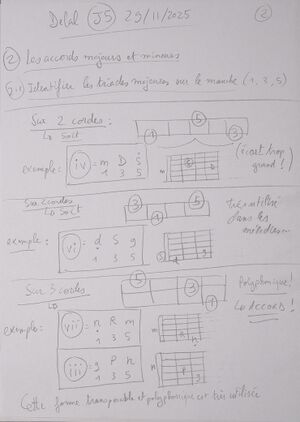 Delal J5 29/11/2025 2
2 Les accords majeurs et mineurs
Identifier les triades majeures sur le manche (1, 3, 5)
Sur 2 cordes :
Lo soit
5
1 3
exemple : iv = m D S
1 3 5
m
(écart trop
grand !)
Sur 2 cordes
Lo soit
3 5
1
très utilisé
dans les
mélodies
exemple : vi = d S g
1 3 5
Sur 3 cordes
Lo
5 3
1
Polyphonique !
Lo ACCORD !
exemple : vii = n R m
1 3 5
m
iii = g P n
1 3 5
Cette forme transposable et polyphonique est très utilisée